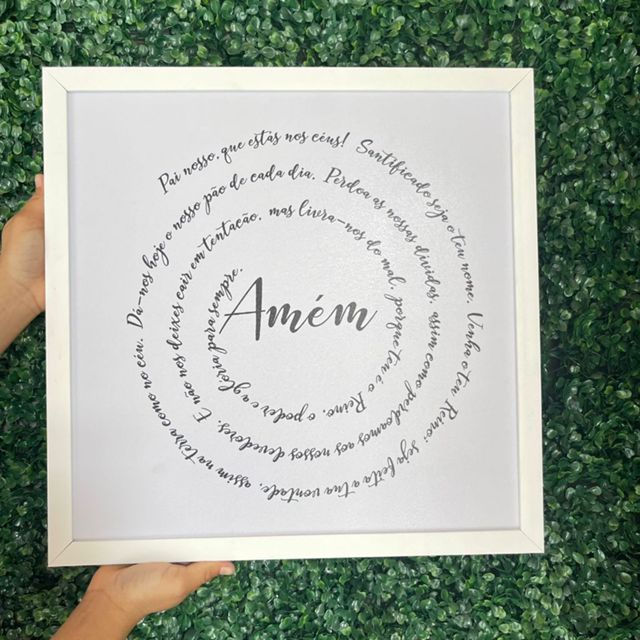 Pai nosso, que estás nos céus! Santificado seja o teu nome. Venha o teu Reino; seja feita a tua vontade, assim na terra como no céu. Dá-nos hoje o nosso pão de cada dia. Perdoa as nossas dívidas, assim como perdoamos aos nossos devedores. E não nos deixes cair em tentação, mas livra-nos do mal, porque teu é o Reino, o poder e a glória para sempre.
Amém